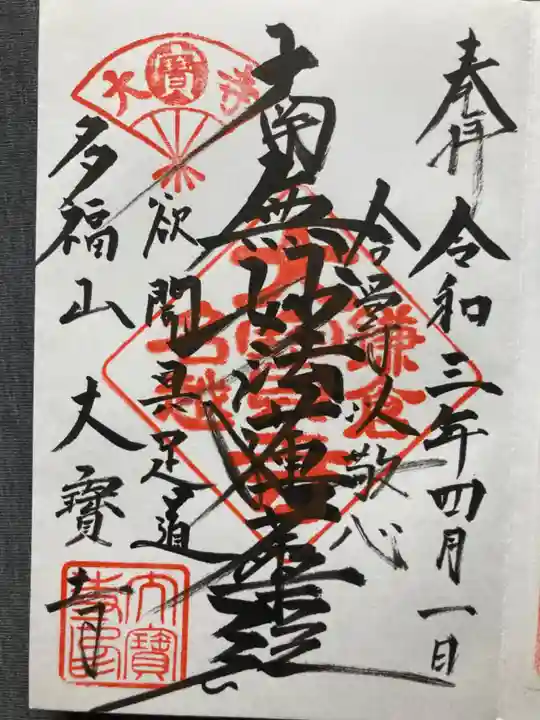 奉拝
令和三年四月一日
合掌以敬心
南無妙法蓮華経
欲聞具足道
多福山 大寳寺
大寳寺
鎌倉
名越
大寳